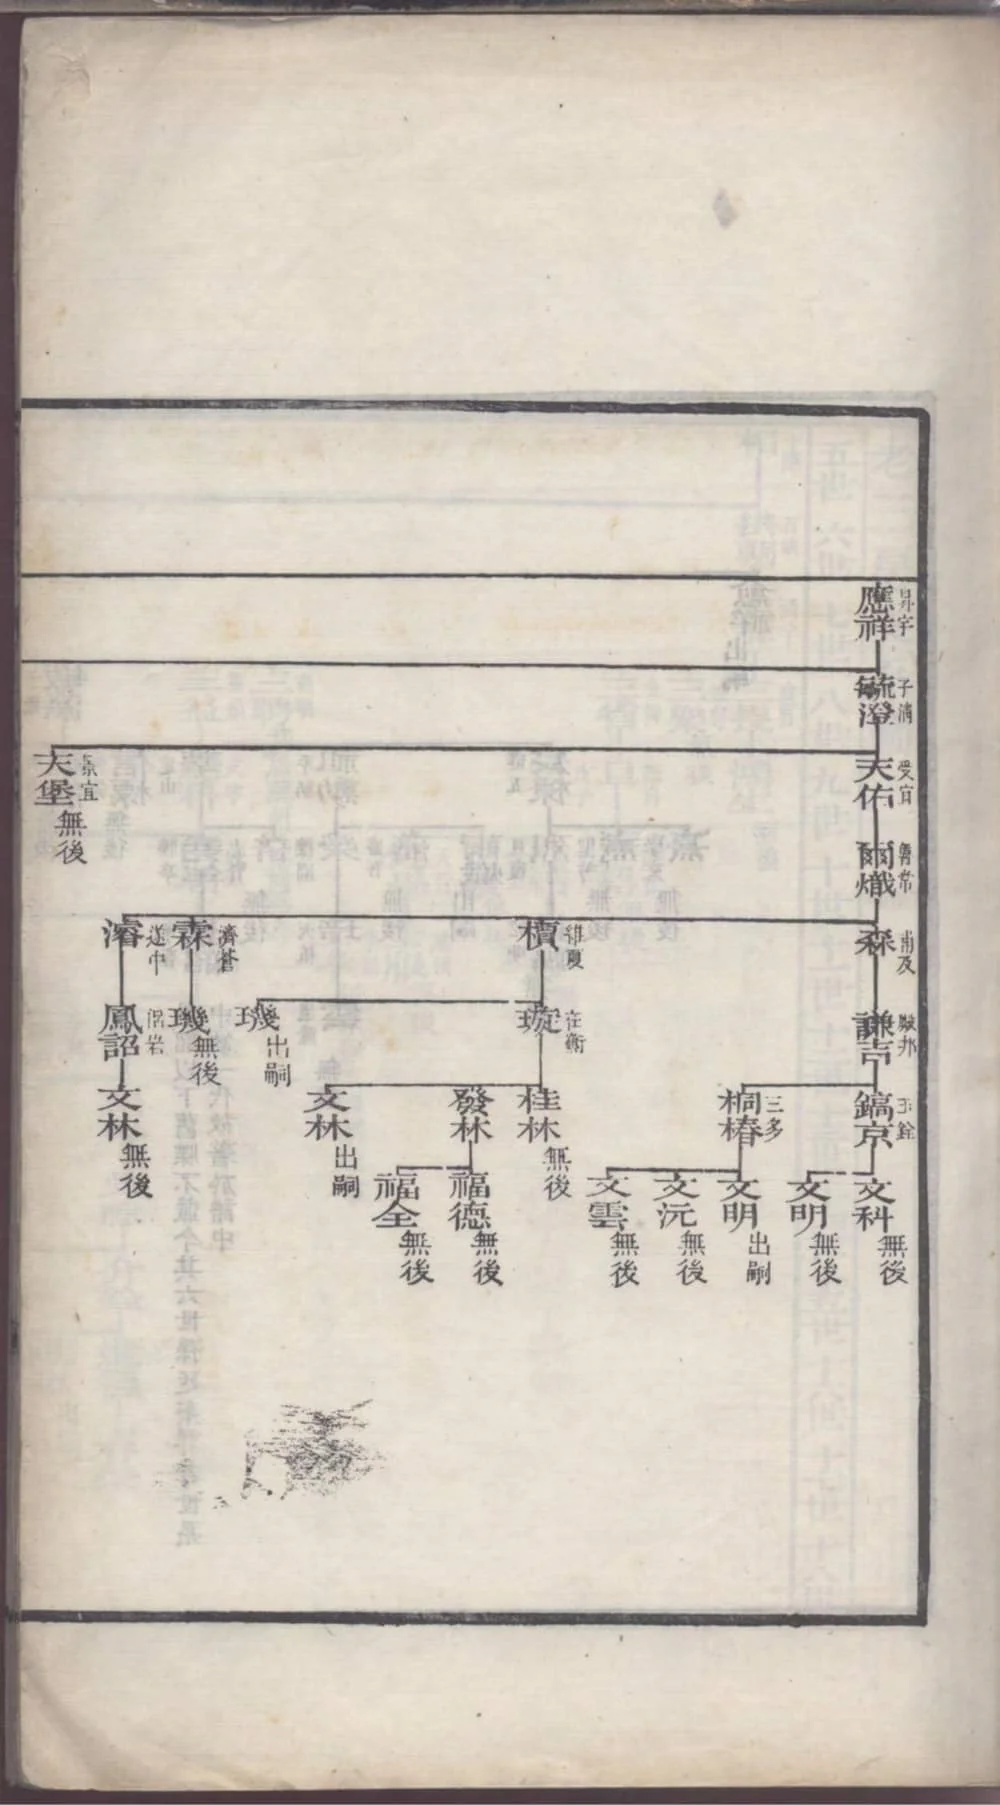 應祥 昇宇
毓澄 子清
天佑 受宜
天堡 崇宜 無後
爾熾 魯常
森 甫及
櫝 稚夏
霖 濟蒼
濬 遂中
謙吉
璇 在衡
璣 出嗣
璣 無後
鳳詔 侶岩
鎬京 玉銓
桐椿 三多
桂林 無後
發林
文林 出嗣
文林 無後
文科 無後
文明 無後
文明 出嗣
文沅 無後
文雲 無後
福德 無後
福全 無後